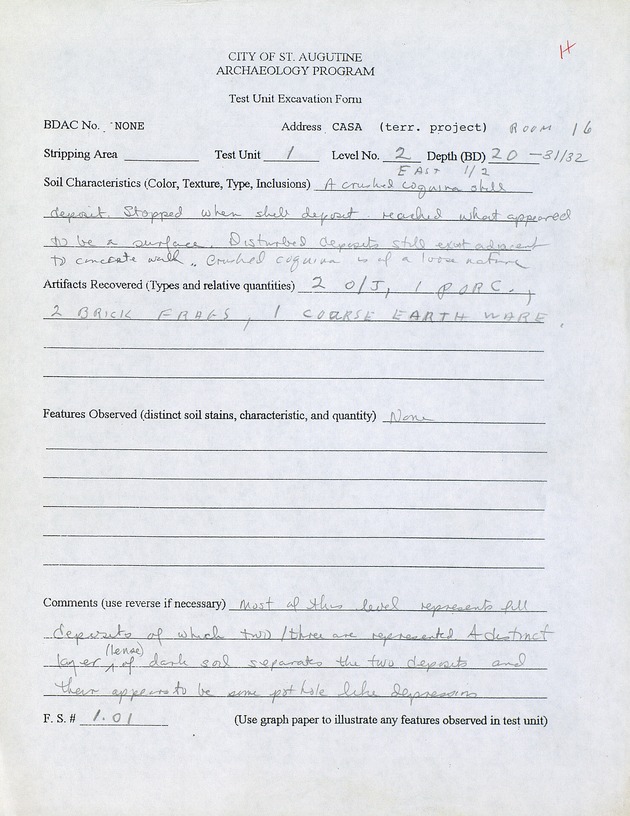 H
CITY OF ST. AUGUTINE
ARCHAEOLOGY PROGRAM
Test Unit Excavation Form
BDAC No. NONE Address CASA (terr. project) ROOM 16
Stripping Area Test Unit 1 Level No. 2 Depth (BD) 20 - 31/32
EAST 1/2
Soil Characteristics (Color, Texture, Type, Inclusions) A crushed coquina shell
deposit. Stopped when shell deposit reached what appeared
to be a surface. Disturbed deposits still exist adjacent
to concrete wall. Crushed coquina is of a loose nature
Artifacts Recovered (Types and relative quantities) 2 O/J, 1 PORC.,
2 BRICK FRAGS, 1 COARSE EARTH WARE.
Features Observed (distinct soil stains, characteristic, and quantity) None
Comments (use reverse if necessary) Most of this level represents fill
deposits of which two/three are represented A distinct
(lense)
layer ^ of dark soil separates the two deposits and
their appears to be some pot hole like depression
F. S. # 1.01 (Use graph paper to illustrate any features observed in test unit)